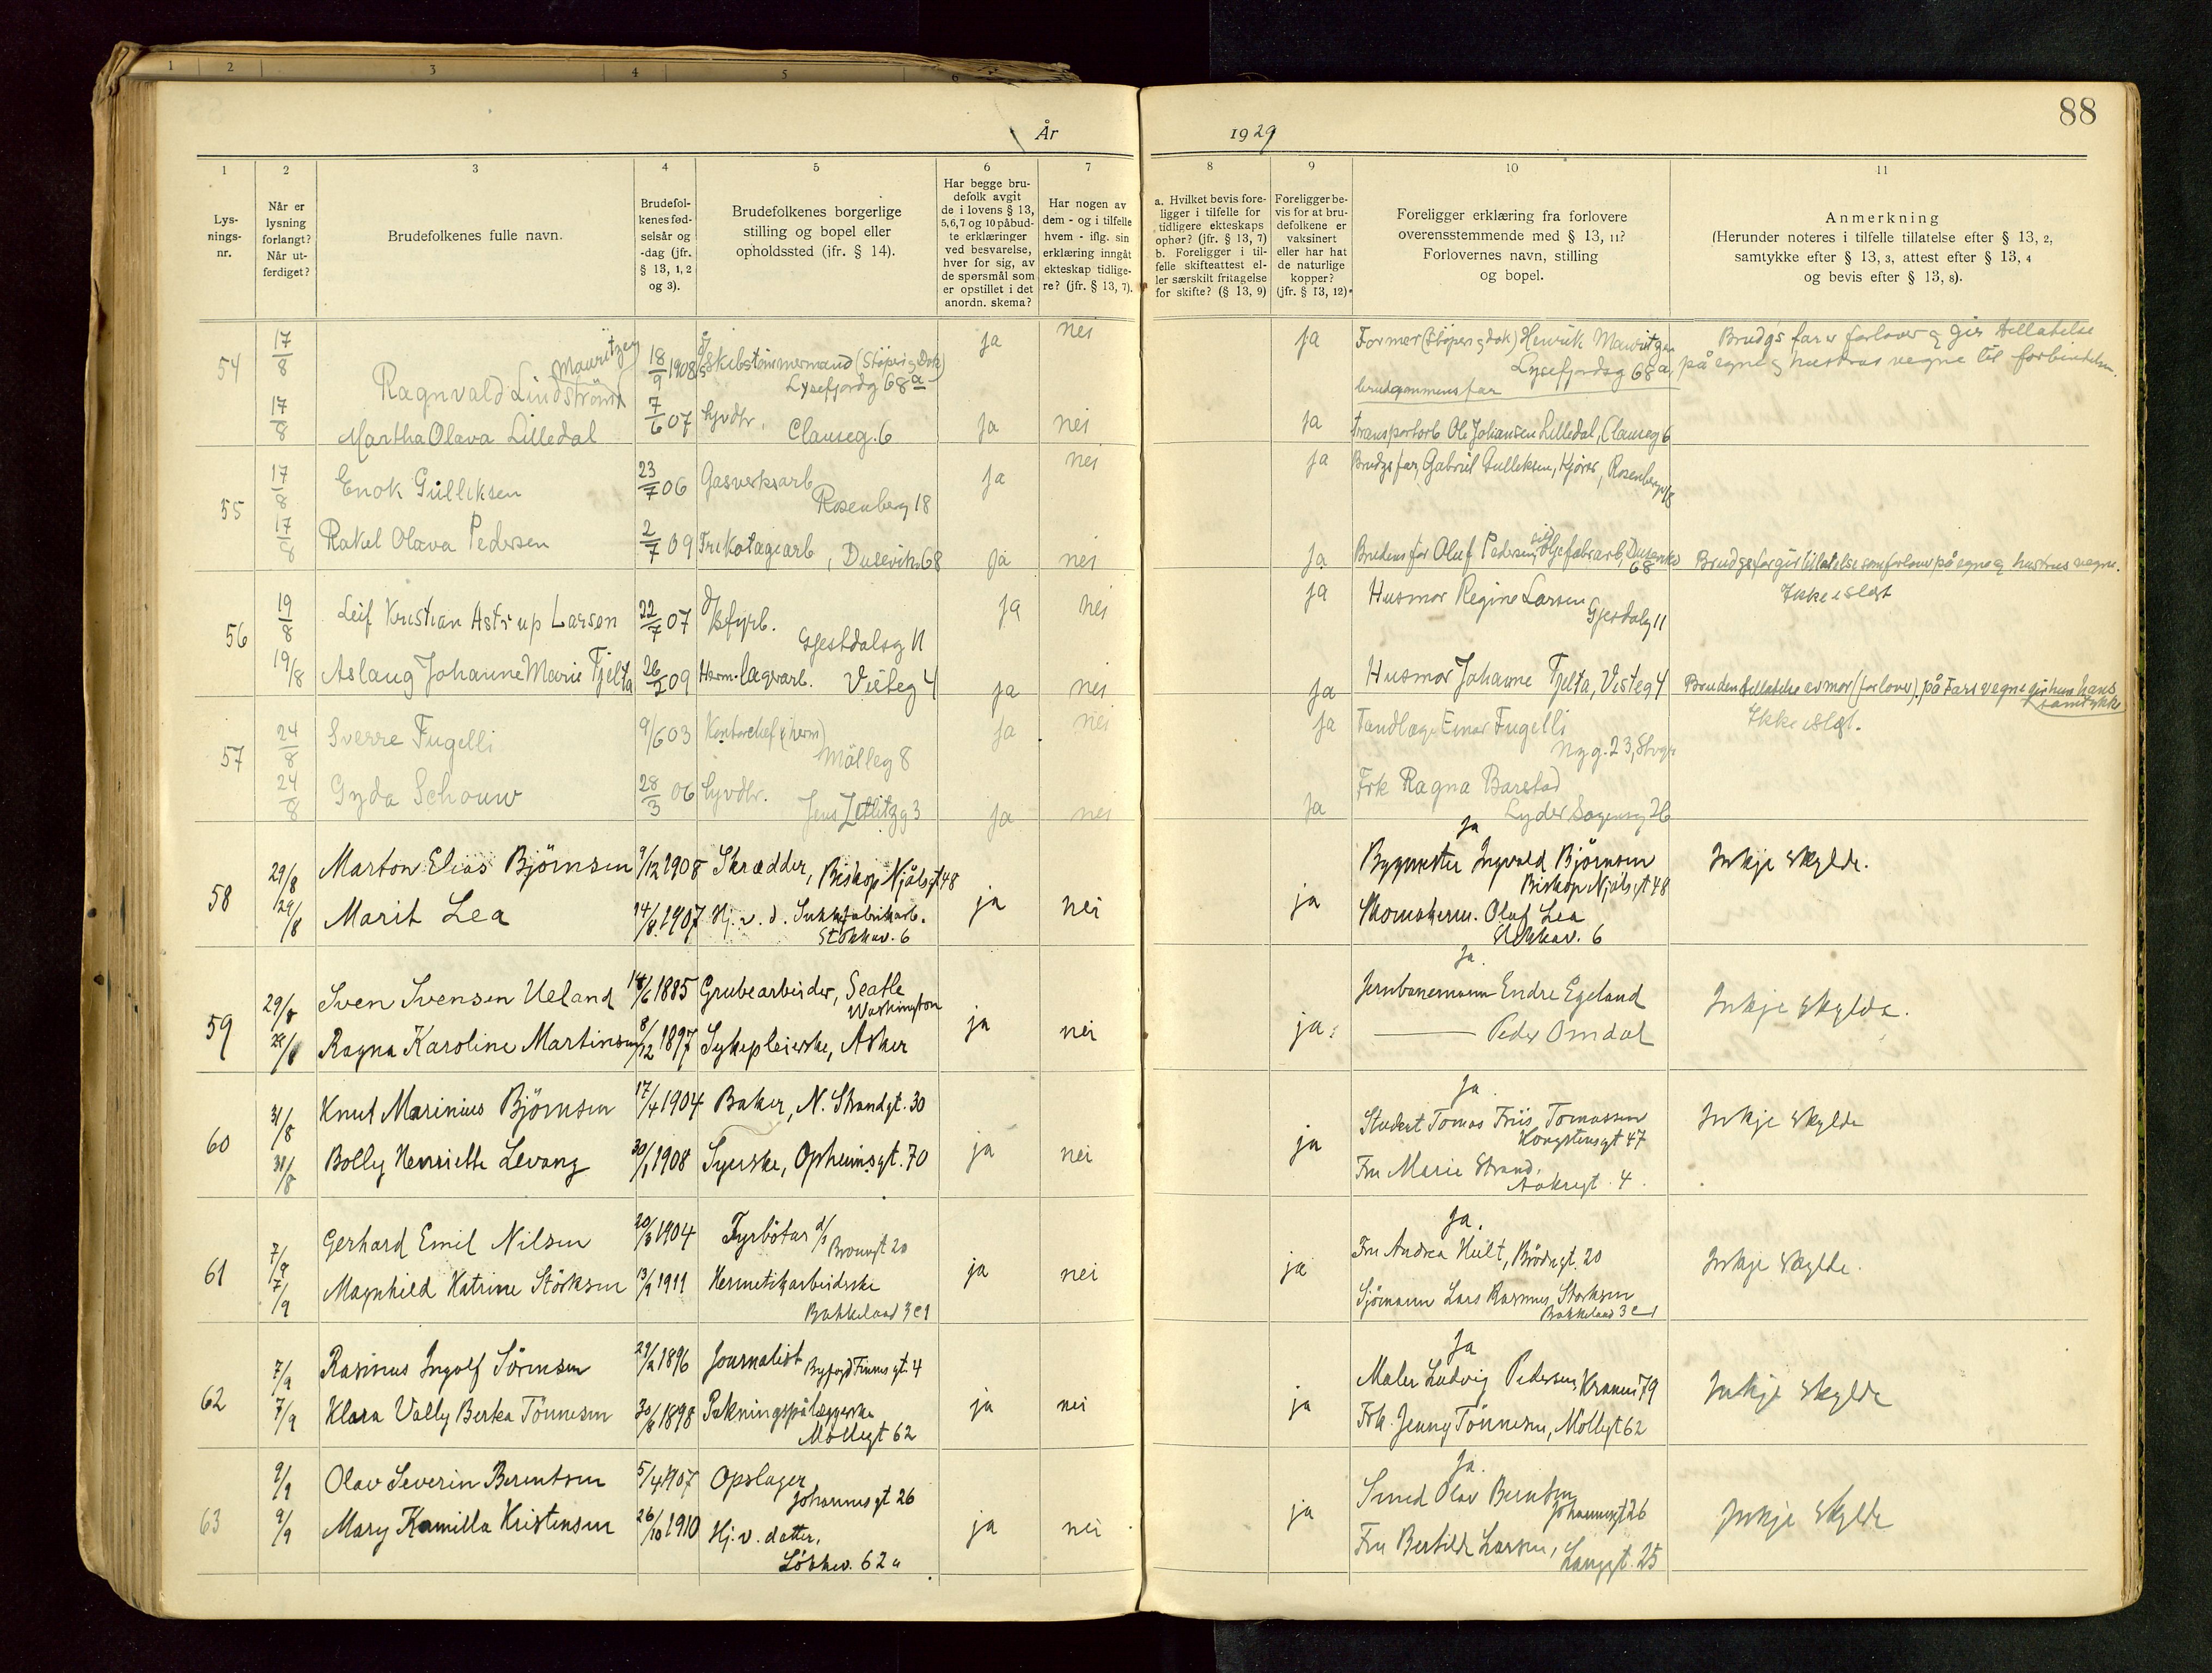 1 2 3 4 5 6
88
År 1929
1 2 3 4 5 6 7 8 9 10 11
Lys-
nings-
nr.
Når er
lysning
forlangt?
Når ut-
ferdiget?
Brudefolkenes fulle navn.
Brudefol-
kenes fød-
selsår og
-dag (jfr.
§ 13, 1, 2
og 3).
Brudefolkenes borgerlige
stilling og bopel eller
opholdssted (jfr. § 14).
Har begge bru-
defolk avgit
de i lovens § 13,
5,6,7 og 10 påbud-
te erklæringer
ved besvarelse,
hver for sig, av
de spørsmål som
er opstillet i det
anordn. skema?
Har nogen av
dem - og i tilfelle
hvem - iflg. sin
erklæring inngåt
ekteskap tidlige-
re? (jfr. § 13, 7).
a. Hvilket bevis fore-
ligger i tilfelle for
tidligere ekteskaps
ophør? (jfr. § 13, 7)
b. Foreligger i til-
felle skifteattest el-
ler særskilt fritagelse
for skifte? (§ 13, 9)
Foreligger be-
vis for at bru-
defolkene er
vaksinert
eller har hat
de naturlige
kopper?
(jfr. § 13, 12).
Foreligger erklæring fra forlovere
overensstemmende med § 13, 11?
Forlovernes navn, stilling
og bopel.
Anmerkning
(Herunder noteres i tilfelle tillatelse efter § 13, 2,
samtykke efter § 13, 3, attest efter § 13, 4
og bevis efter § 13, 8).
54 17/8 Ragnvald Lindström Mauritzen 18/9 1908 Skibstömmermand (Støperi & Dok)
Lysefjordg 68a
ja nei ja Former (Støperi & dok) Henrik Mauritzen
Lysefjordsg 68a,
brudgommens far
Brudgs far er forlover og gir tillatelse
på egne og hustrus vegne til forbindelsen.
17/8 Martha Olava Lilledal 7/6 07 hjvdtr. Clauseg. 6 ja nei ja Transportarb Ole Johansen Lilledal, Clauseg 6
55 17/8 Enok Gulliksen 23/7 06 Gasverksarb
Rosenberg 18
ja nei ja Brudgs far, Gabriel Gulliksen, Kjører, Rosenberg 18
17/8 Rakel Olava Pedersen 2/7 09 Trikotagearb, Dusevikv 68 ja nei ja Brudens far Oluf Pedersen, Oljefabrarb, Dusevikv 68
Brudgs far gir tillatelse som forlover på egne og hustrus vegne.
56 19/8 Leif Kristian Astrup Larsen 22/7 07 d/s fyrb.
Gjestdalsg 11
ja nei ja Husmor Regine Larsen
Gjesdalg 11
Ikke i slegt
19/8 Aslaug Johanne Marie Fjelta 26/2 09 Herm. lagerarb. Visteg 4 ja nei ja Husmor Johanne Fjelta, Visteg 4
Bruden tillatelse av mor (forlover), på Fars vegne gir hun hans
samtykke
57 24/8 Sverre Fugelli 9/6 03 Kontorchef (herm)
Mölleg 8
ja nei ja Tandlæge Einar Fugelli
Nyg. 23, Stvgr
Ikke i slegt.
24/8 Gyda Schouw 28/3 06 hjvdtr.
Jens Zetlitzg 3
ja nei ja Frk Ragna Barstad
Lyder Sagensg 26
58 29/8 Marton Elias Björnsen 9/12 1908 Skrædder, Biskop Njålsgt 48
29/8 Marit Lea 14/8 1907 Hj. v. d.
Stokkav. 6
ja nei ja
Ja
Byggmester Ingvald Björnsen
Biskop Njålsgt 48
Skomakerm. Oluf Lea
Stokkav. 6
Inkje skylde.
59 29/8 Sven Svensen Ueland 14/6 1885 Grubearbeider, Seatle
Washington
28/8 Ragna Karoline Martinsen 8/12 1897 Sykepleierske, Asker
ja nei ja
Ja.
Jernbanemann Endre Egeland
——— Peder Omdal
Inkje skylde.
60 31/8 Knut Marinius Björnsen 17/4 1904 Baker, N. Strandgt. 30
31/8 Bolly Henriette Levang 30/1 1908 Syerske, Opheimsgt. 70
ja nei ja
Ja.
Student Tomas Friis Tomassen
Kongstensgt 47
Fru Marie Strand,
Aakregt. 4.
Inkje skylde
61 7/9 Gerhard Emil Nilsen 20/8 1904 Fyrbötar d/s
20
7/9 Magnhild Katrine Störksen 13/9 1911 Hermetikarbeiderske
Bakkeland 3 e 1
ja nei ja
Ja.
Fru Andrea Hult, Brödregt. 20
Sjömann Lars Rasmus Storksen
Bakkeland 3 e 1
Inkje skylde.
62 7/9 Rasmus Ingolf Sörensen 29/2 1896 Journalist gt. 4
7/9 Klara Vally Berta Tönnesen 30/8 1898 Pakningspålæggerske
Möllegt 62
ja nei ja
Ja
Maler Ludvig Pedersen, 79
Frk. Jenny Tönnesen, Möllegt 62
Inkje skylde
63 9/9 Olav Severin Berentsen 5/4 1907 Opslager
Johannesgt 26
9/9 Mary Kamilla Kristensen 26/10 1910 Hj. v. datter,
Lökkev. 62a
ja nei ja
Ja.
Smed Olav Berntsen
Johannesgt 26
Fru Bertilde Larsen, Langgt. 25
Inkje skylde